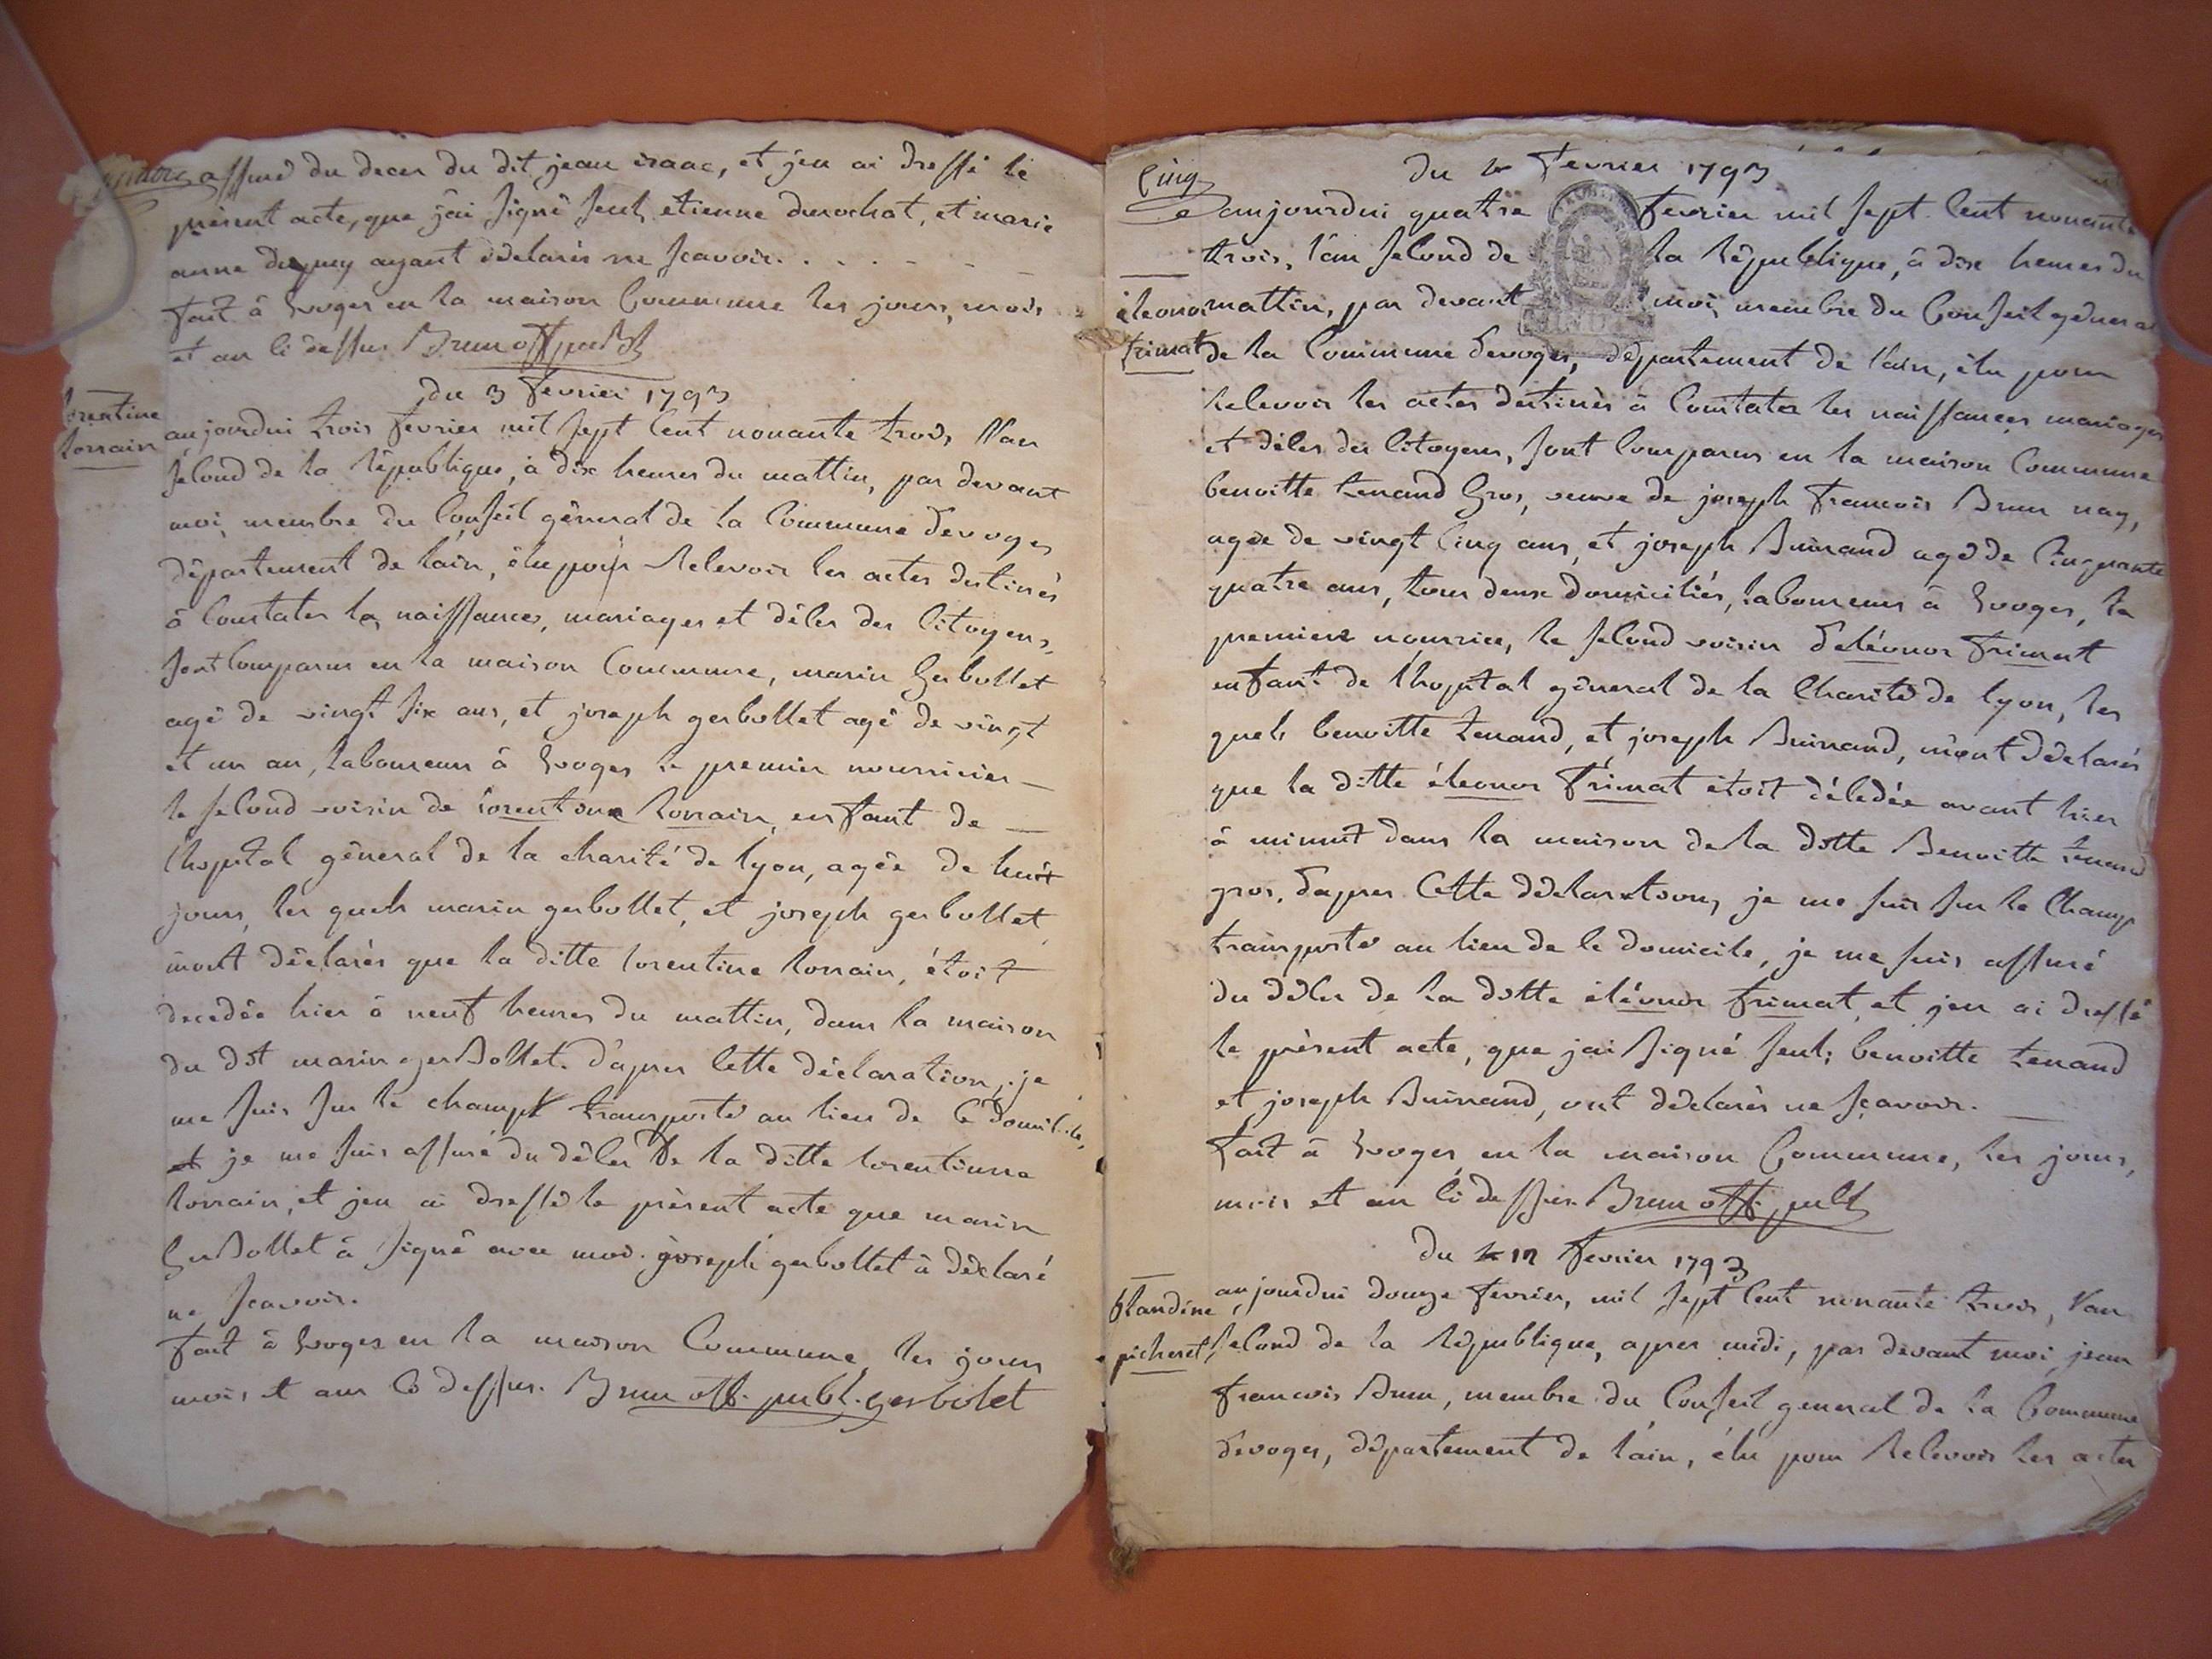 assuré du deces du dit jean isaac, et jen ai dressé le
présent acte, que jai signé seul, etienne durochat, et marie
anne dupuy ayant déclarés ne scavoir.
fait à Evoges en la maison Commune les jours, mois
et an ci dessus Brun off publ
du 3 fevrier 1793
lorentine
lorrain
aujourdui trois fevrier mil sept cent nonante trois, l'an
second de la république, à dix heures du mattin, par devant
moi, membre du Conseil général de la Commune devoges
département de lain, élu pour recevoir les actes destinés
à Constater les naissances, mariages et décès des Citoyens,
sont Comparus en la maison Commune, marin Gerbollet
agé de vingt six ans, et joseph gerbollet agé de vingt
et un an, laboureurs à Evoges le premier nourricier
le second voisin de lorentine lorrain, enfant de
lhopital géneral de la charité de lyon, agée de huit
jours, les quels marin gerbollet, et joseph gerbollet,
mont déclarés que la ditte lorentine lorrain, étoit
decedée hier à neuf heures du mattin, dans la maison
du dit marin gerbollet. d'apres Cette déclaration, je
me suis sur le champt transporté au lieu de Ce domicile,
et je me suis assuré du décès de la ditte lorentinne
lorrain, et jen ai dressé le présent acte que marin
Gerbollet à signé avec moi. joseph gerbollet à déclaré
ne scavoir.
fait à Evoges en la maison Commune, les jours
mois et an ci dessus. Brun off. publ. gerbolet
Cinq
du 4 fevrier 1793
aujourdui quatre fevrier mil sept Cent nonante
trois, l'an second de la république, à dix heures du
éleonor
frimat
mattin, par devant moi, membre du Conseil géneral
de la Commune devoges, département de l'ain, élu pour
recevoir les actes destinés à Constater les naissances mariages
et décès des Citoyens, sont Comparus en la maison Commune
benoitte tenand Gros, veuve de joseph francois Brun nay,
agée de vingt Cinq ans, et joseph Buinand agé de Cinquante
quatre ans, tous deux domiciliés, laboureurs à Evoges, la
premiere nourrice, le second voisin deléonor frimat
enfant de lhopital géneral de la Charité de lyon, les
quels benoitte tenand, et joseph Buinand, mont déclarés
que la ditte éleonor frimat étoit décédée avant hier
à minuit dans la maison de la ditte Benoitte tenand
gros, dapres Cette déclaration, je me suis sur le Champ
transporté au lieu de Ce domicile, je me suis assuré
du décès de la ditte éléonor frimat, et jen ai dressé
le présent acte, que jai signé seul; benoitte tenand
et joseph Buinand, ont déclarés ne sçavoir.
fait à Evoges en la maison Commune, les jours,
mois et an ci dessus. Brun off. publ
du 12 fevrier 1793
blandine
picheret
aujourdui douze fevrier, mil sept Cent nonante trois, l'an
second de la république, apres midi, par devant moi, jean
francois Brun, membre du Conseil general de la Commune
devoges, département de l'ain, élu pour recevoir les actes